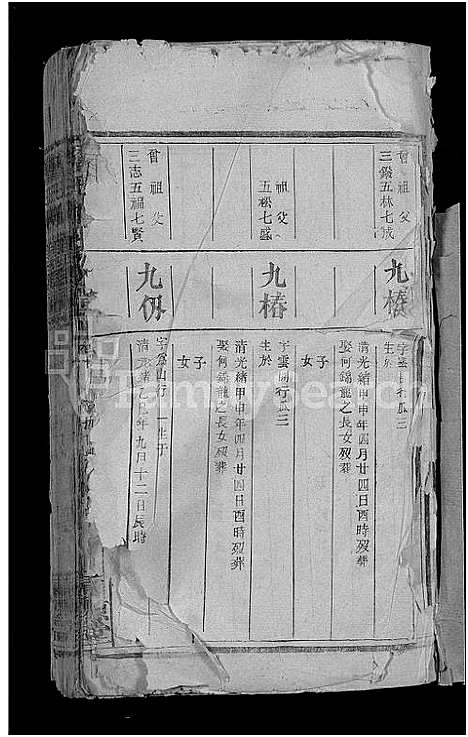 曾祖父
三鏺五林七成
九椿
字雲開行瓜三
生於
清光緒甲申年四月廿四日酉時歿葬
娶何錦龍之長女歿葬
子
女
祖父
五松七盛
九椿
字雲開行瓜三
生於
清光緒甲申年四月廿四日酉時歿葬
娶何錦龍之長女歿葬
子
女
曾祖父
三志五福七賢
九仍
山行 一生于
清光緒乙巳年九月十二日辰時